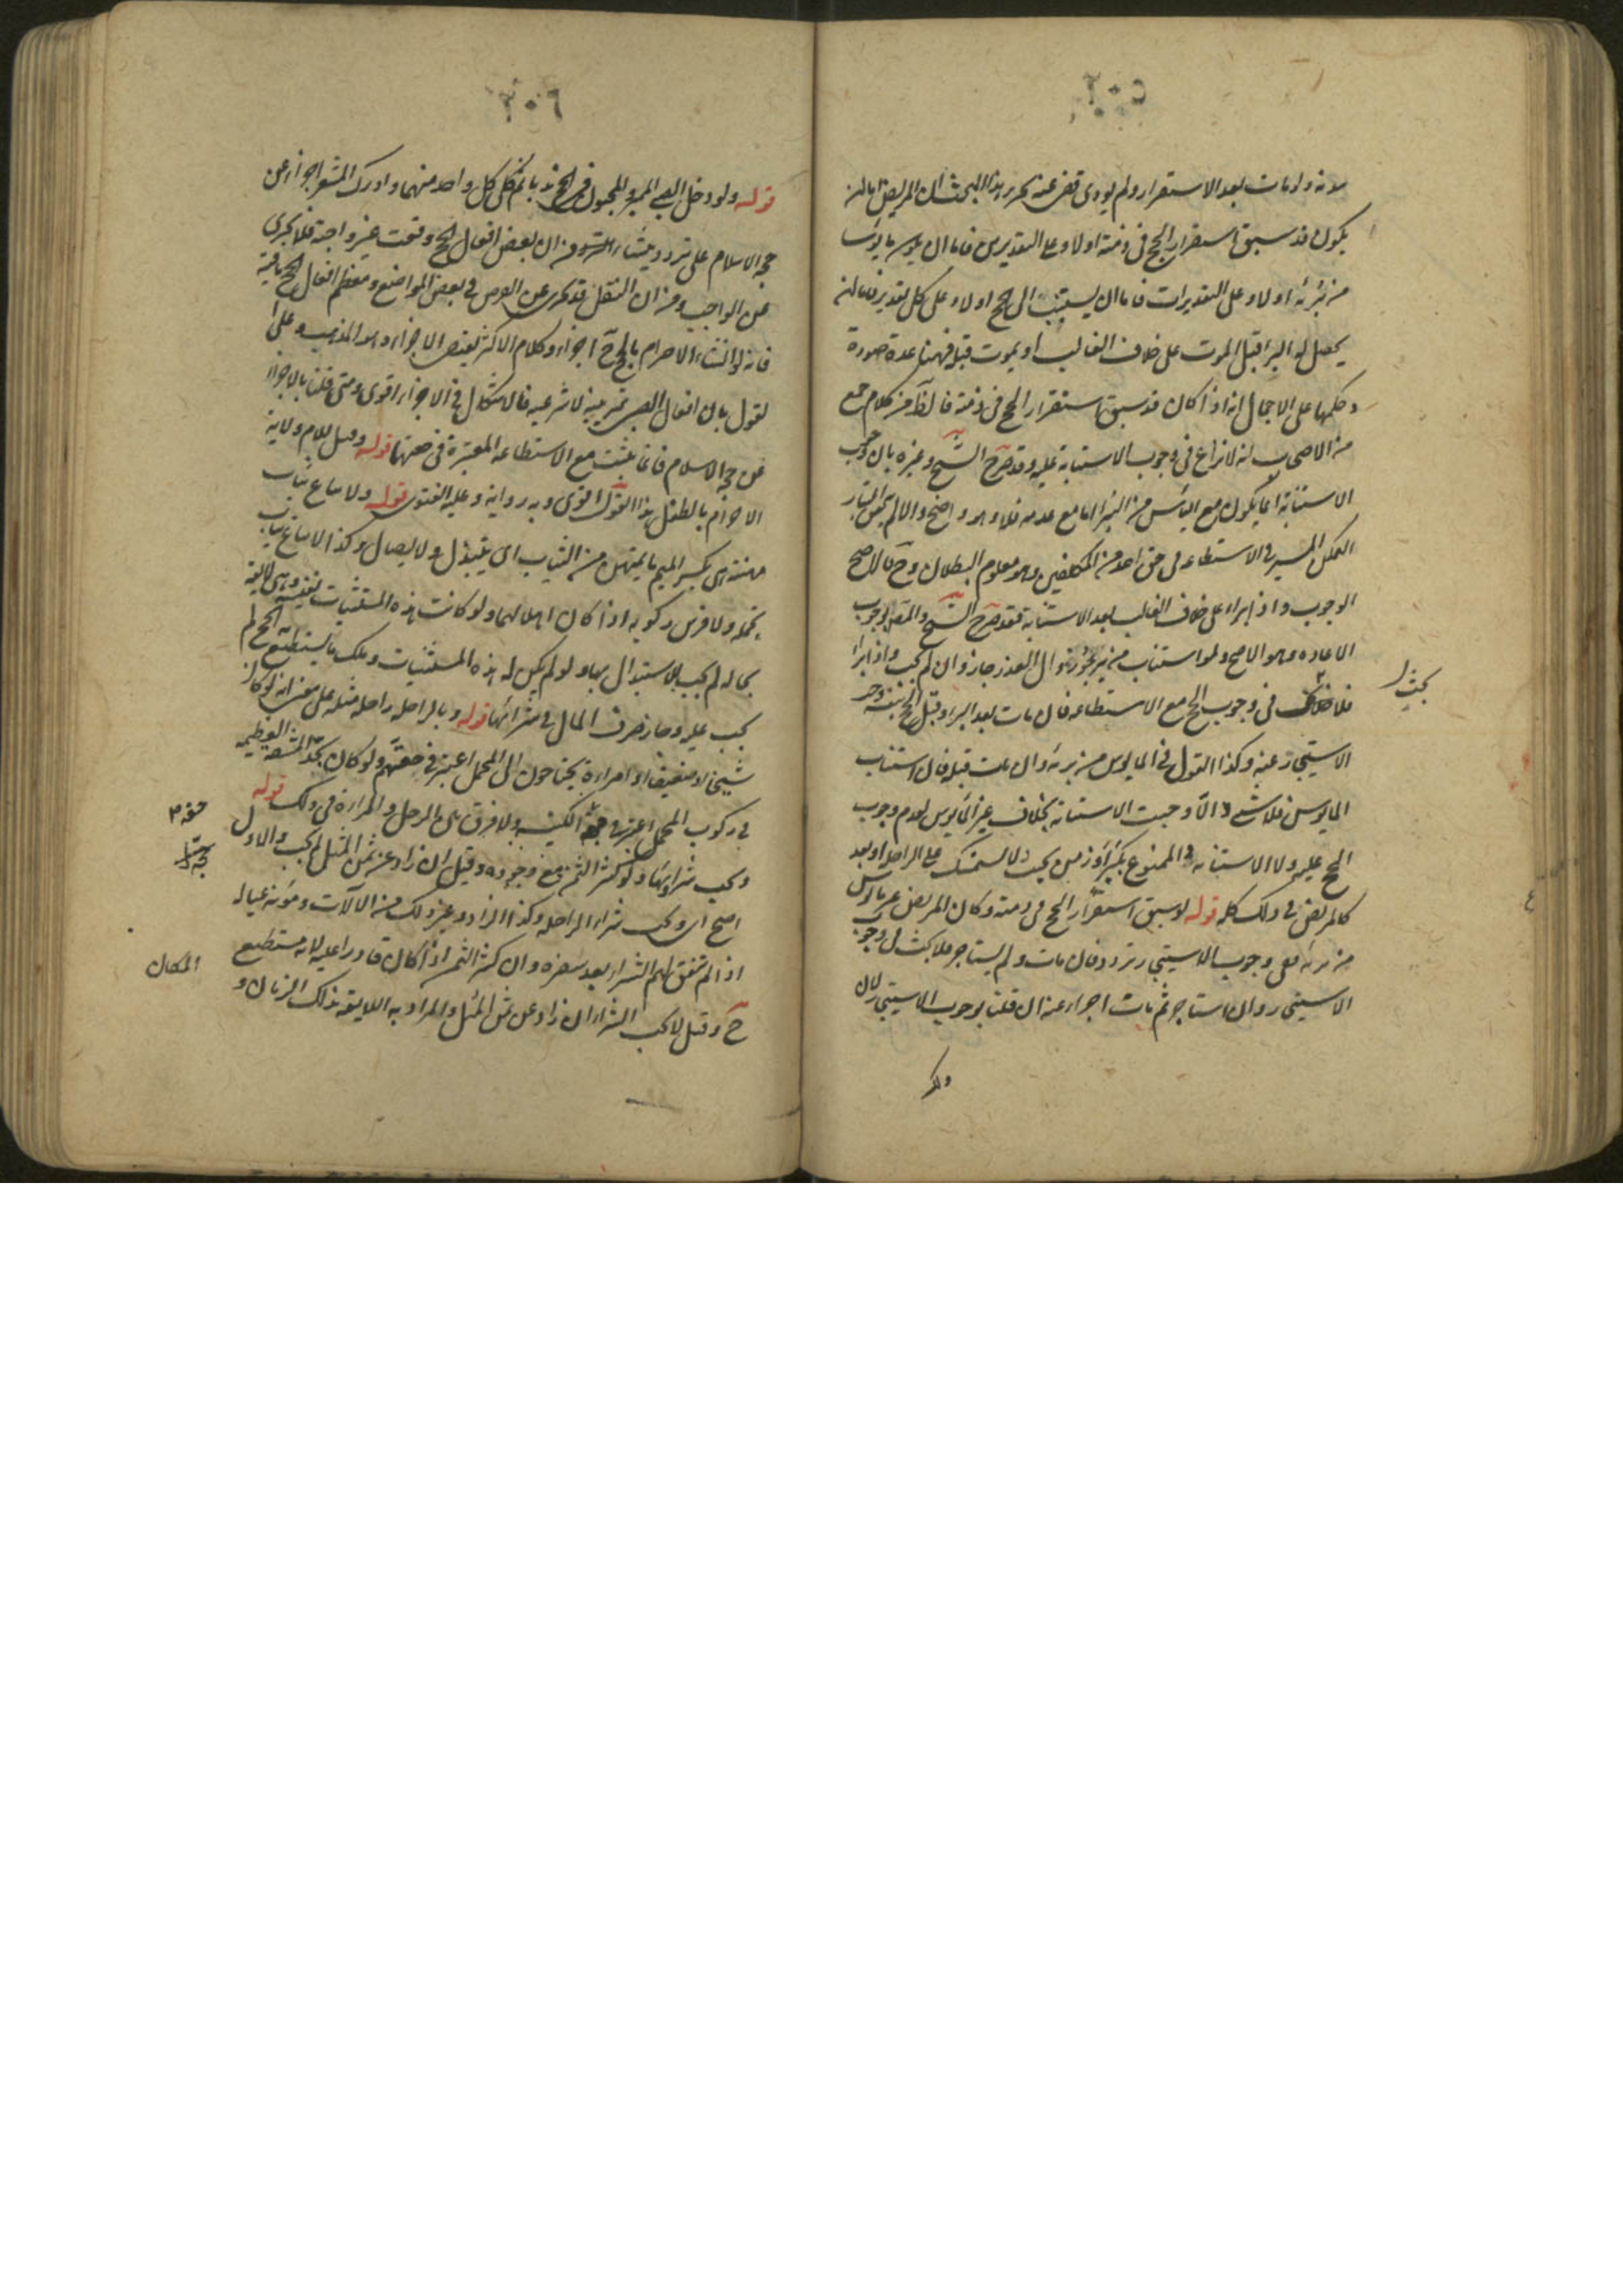 قوله ولو مات بعد الاستقرار ولم يؤدى قضى عنه تحرير هذا البحث ان المريض اما ان
يكون قد سبق استقرار الحج في ذمته اولا وعلى التقديرين فاما ان يكون مايوسا
من برئه اولا وعلى التقديرات فاما ان يستنيب الى الحج اولا وعلى كل تقدير فاما ان
يحصل له البرا قبل الموت على خلاف الغالب او يموت قبله فهنا عدة صورة
وحكمها على الاجمال انه اذا كان قد سبق استقرار الحج في ذمته فالظ من كلام جمع
من الاصحاب انه لا نزاع في وجوب الاستنابة عليه وقد صرح الشيخ وغيره بان وجوب
الاستنابة انما يكون مع الياس من البرا اما مع عدمه فلا وهو واضح والا لم يكن اعتبار
التمكن المسير في الاستطاعه في حق احد من المكلفين وهو معلوم البطلان وح فالاصح
الوجوب واذا برا على خلاف الغالب بعد الاستنابة فقد صرح الشيخ والمص بوجوب
الاعاده وهو الاصح ولو استناب من يرجو زوال العذر جاز وان لم يجب واذا برا
بحث
فلا خلاف في وجوب الحج مع الاستطاعه فان مات بعد البرا وقبل الحج بنفسه وجب
الاستيجار عنه وكذا القول في المايوس من برئه وان مات قبله فان استناب
المايوس فلا شي والا وجبت الاستنابة بخلاف غير المايوس لعدم وجوب
الحج عليه ولا الاستنابة والممنوع بكبر او زمن بحيث لا يستمسك على الراحلة او بعد
كالمريض في ذلك كله قوله لو سبق استقرار الحج في ذمته وكان المريض غير مايوس
من برئه ففي وجوب الاستيجار تردد فان مات ولم يستاجر فلا بحث في وجوب
الاستيجار وان استاجر ثم مات اجزاء عنه ان قلنا بوجوب الاستيجار لان
قوله ولو دخل الصبي المميز والمجنون في الحج ندبا ثم كمل كل واحد منهما وادرك المشعر اجزا عن
حجة الاسلام على تردد ينشاء من ان بعض افعال الحج وقعت غير واجبة فلا تجزى
عن الواجب ومن ان النفل قد تجزى عن الفرض في بعض المواضع ومعظم افعال الحج باقية
فانه لو انشاء الاحرام بالحج ح اجزاء وكلام الاكثر يقتضى الاجزاء وهو المذهب وعلى
القول بان افعال الصبي تمرينية لا شرعية فالاشكال في الاجزاء اقوى ومتى قلنا بالاجزاء
عن حجة الاسلام فانما يثبت مع الاستطاعه المعتبرة في حقهما قوله وقيل للام ولاية
الاحرام بالطفل هذا القول اقوى وبه رواية وعليه الفتوى قوله ولا يباع ثياب
مهنته هي بكسر الميم ما يمتهن من الثياب اى يبتذل ولا يصان وكذا لا يباع ثياب
تجمله ولا فرس ركوبه اذا كان اهلا لهما ولو كانت هذه المستثنيات نفيسه وهي لائقه
بحاله لم يجب الاستبدال بها ولو لم يكن له هذه المستثنيات وملك ما يستطيع به الحج لم
يجب عليه وجاز صرف المال في شرائها قوله وبالراحله راحله مثله على معنى انه لو كان
شيخا او ضعيفا او امراة يحتاجون الى المحمل اعتبر في حقهم ولو كان يجد المشقه العظيمه
في ركوب المحمل اعتبر في حقه الكنيسه ولا فرق بين الرجل والمراة في ذلك قوله
حقه م
ويجب شراؤها ولو كثر الثمن مع وجوده وقيل ان زاد عن ثمن المثل لم يجب والاول
اصح اى ويجب شراء الراحله وكذا الزاد وغير ذلك من الآلات ومؤنة عياله
اذا لم تتفق لهم الشراء بعد سفره وان كثر الثمن اذا كان قادرا عليه لانه مستطيع
ح وقيل لا يجب الشراء ان زاد عن ثمن المثل والمراد به اللايقه بذلك الزمان و
المكان